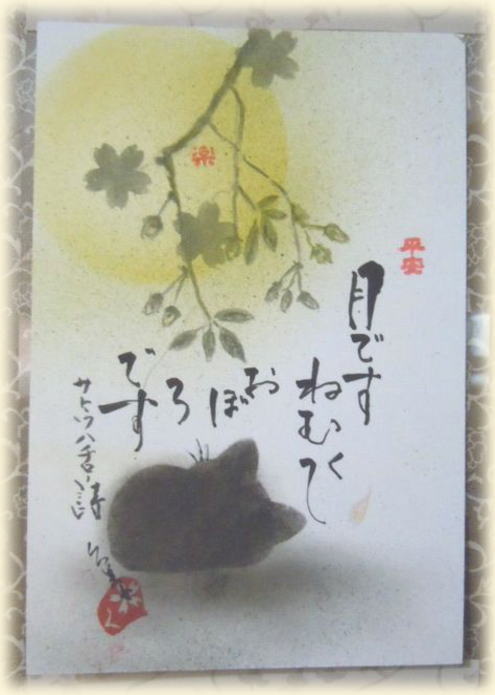 月です
ねむくて
おぼろ
です
サトウハチロー詩
平安
楽